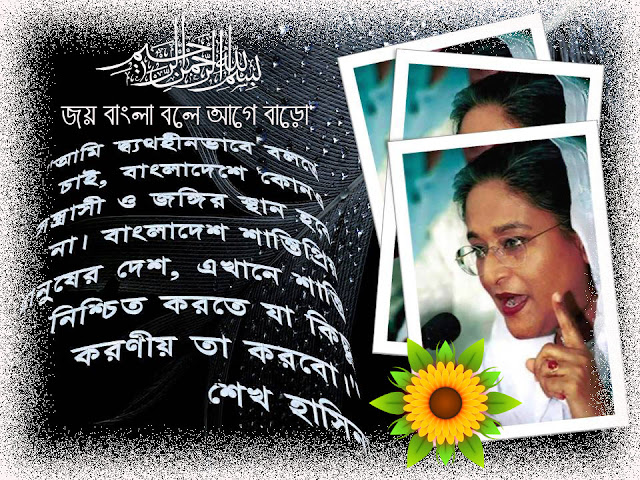 بسم الله الرحمن الرحيم
জয় বাংলা বলে আগে বাড়ো
"আমি দ্ব্যর্থহীনভাবে বলতে
চাই, বাংলাদেশে কোনও
সন্ত্রাসী ও জঙ্গির স্থান হবে
না। বাংলাদেশ শান্তিপ্রিয়
মানুষের দেশ, এখানে শান্তি
নিশ্চিত করতে যা কিছু
করণীয় তা করবো।"
শেখ হাসিনা